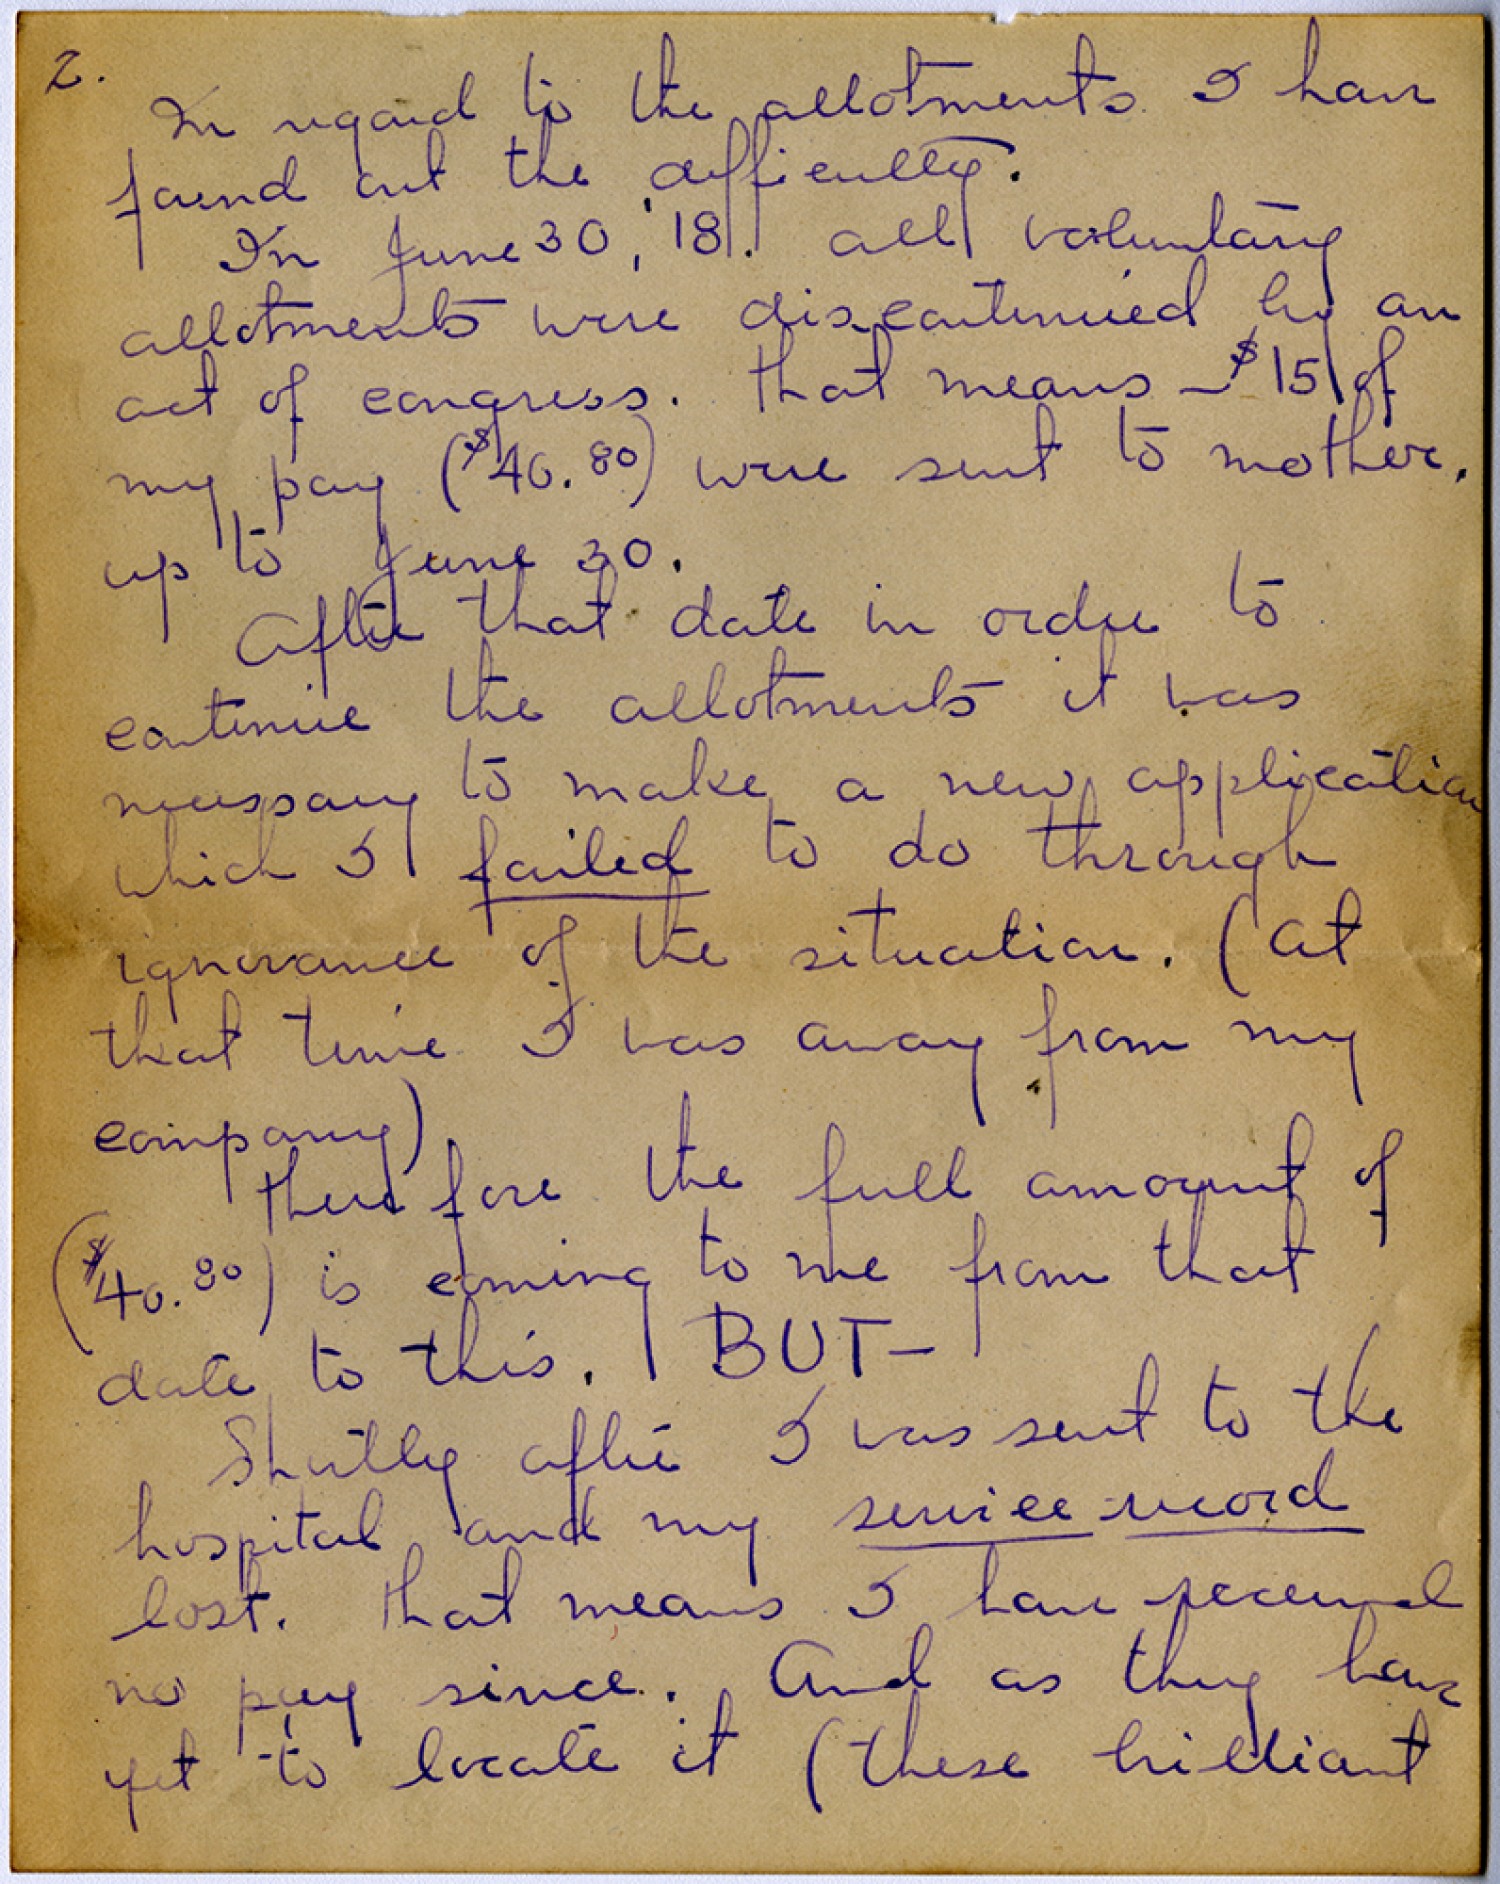 2.
In regard to the allotments I have
found out the difficulty.
In June 30, '18. all voluntary
allotments were discontinued by an
act of congress. That means - $15 of
my pay ($40.80) were sent to mother.
up to June 30.
After that date in order to
continue the allotments it was
necessary to make a new application
which I failed to do through
ignorance of the situation. (At
that time I was away from my
company).
Therefore the full amount of
($40.80) is coming to me from that
date to this. BUT-
Shortly after I was sent to the
hospital and my service-record
lost. That means I have received
no pay since. And as they have
yet to locate it (these brilliant